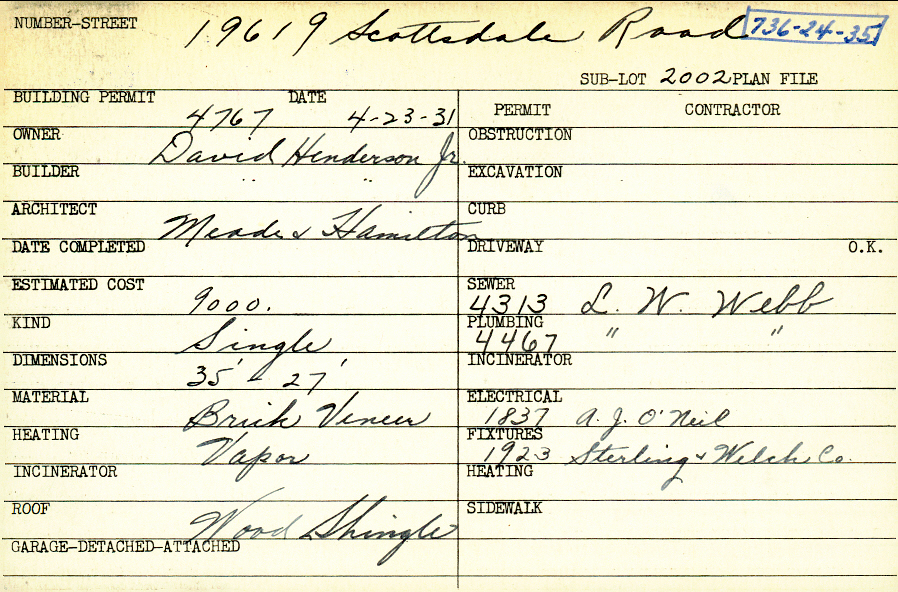 NUMBER-STREET 19619 Scottsdale Road 736-24-35
SUB-LOT 2002 PLAN FILE
BUILDING PERMIT 4767 DATE 4-23-31 PERMIT CONTRACTOR
OWNER David Henderson Jr. OBSTRUCTION
BUILDER " " EXCAVATION
ARCHITECT Meade & Hamilton CURB
DATE COMPLETED DRIVEWAY O.K.
ESTIMATED COST 9000. SEWER 4313 L. W. Webb
KIND Single PLUMBING 4467 " "
DIMENSIONS 35' - 27' INCINERATOR
MATERIAL Brick Veneer ELECTRICAL 1837 A. J. O'Neil
HEATING Vapor FIXTURES 1923 Sterling & Welch Co.
INCINERATOR HEATING
ROOF Wood Shingle SIDEWALK
GARAGE-DETACHED-ATTACHED